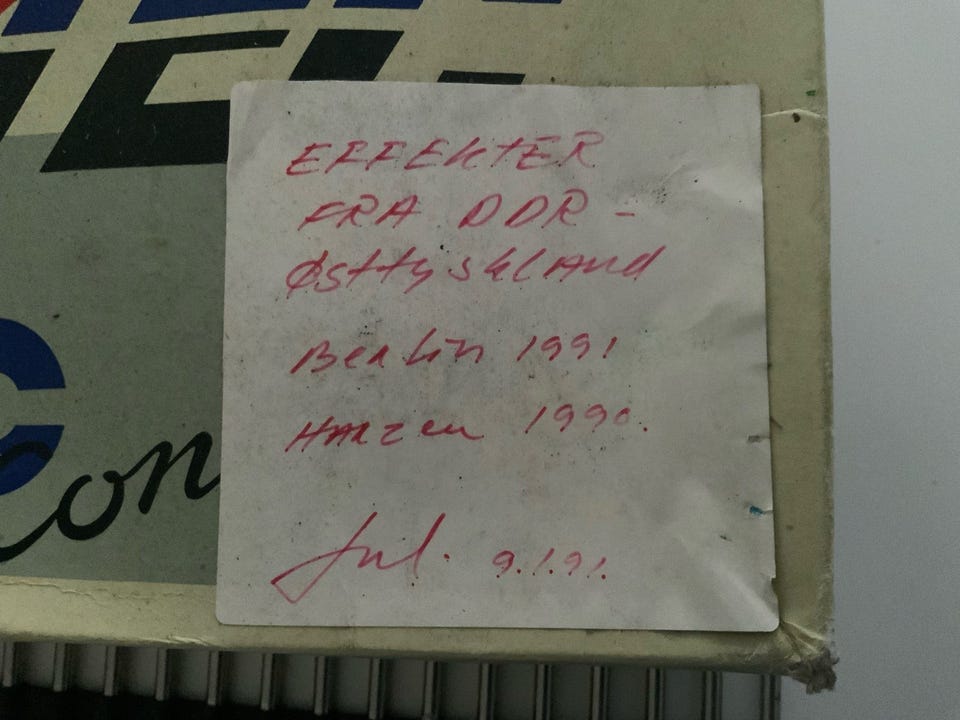 EFFEKTER
FRA DDR -
Østtyskland
Berlin 1991
Harzen 1990.
9.1.91.
con